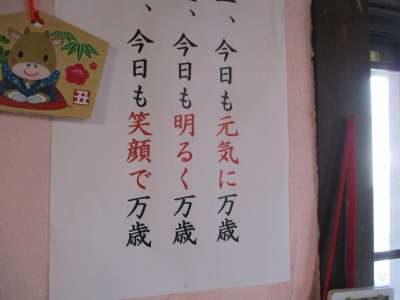 、今日も元気に万歳
、今日も明るく万歳
、今日も笑顔で万歳
丑